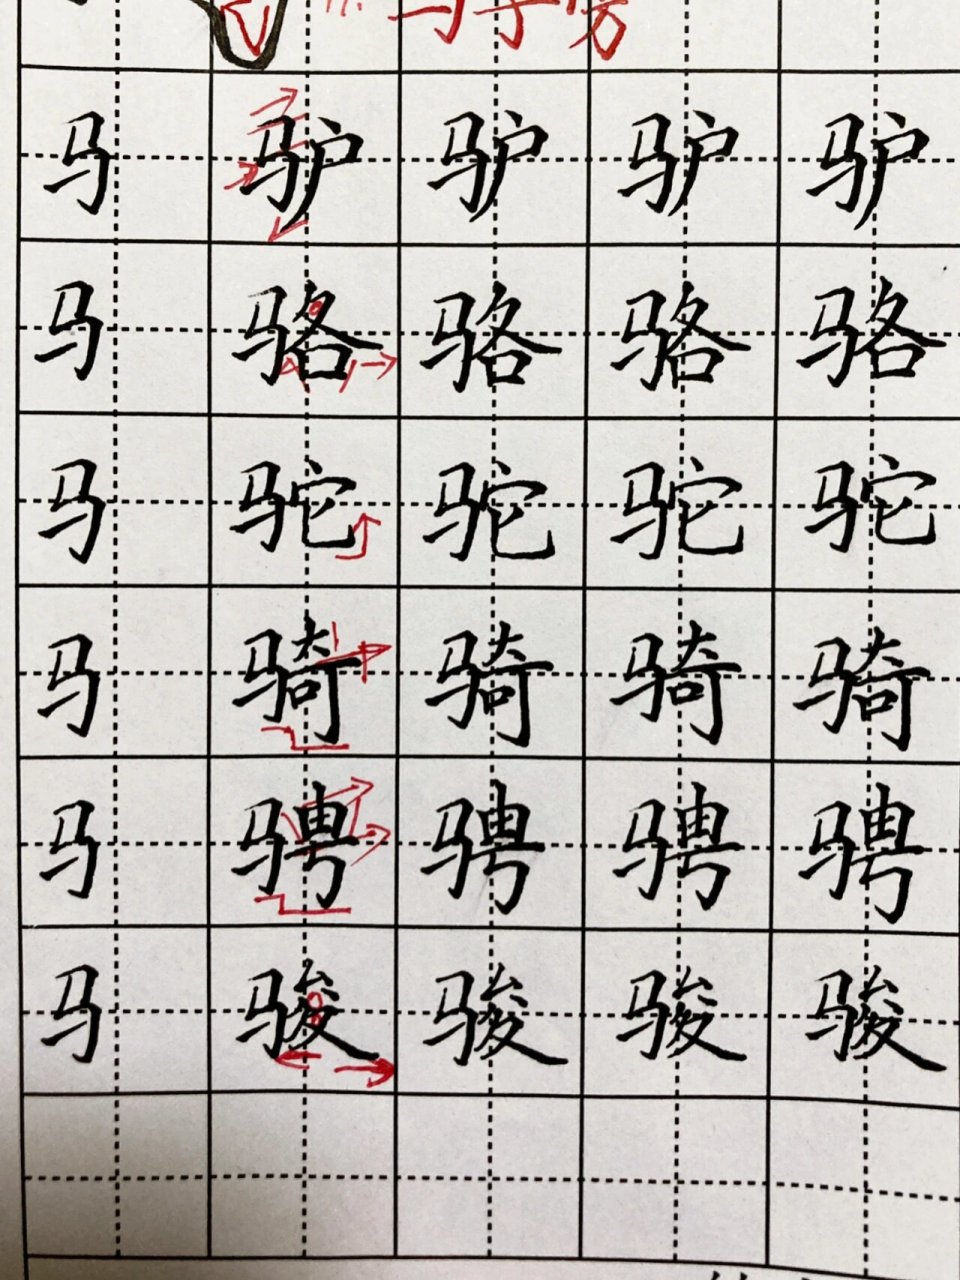 马字旁
马 驴 驴 驴 驴
马 骆 骆 骆 骆
马 驼 驼 驼 驼
马 骑 骑 骑 骑
马 骋 骋 骋 骋
马 骏 骏 骏 骏